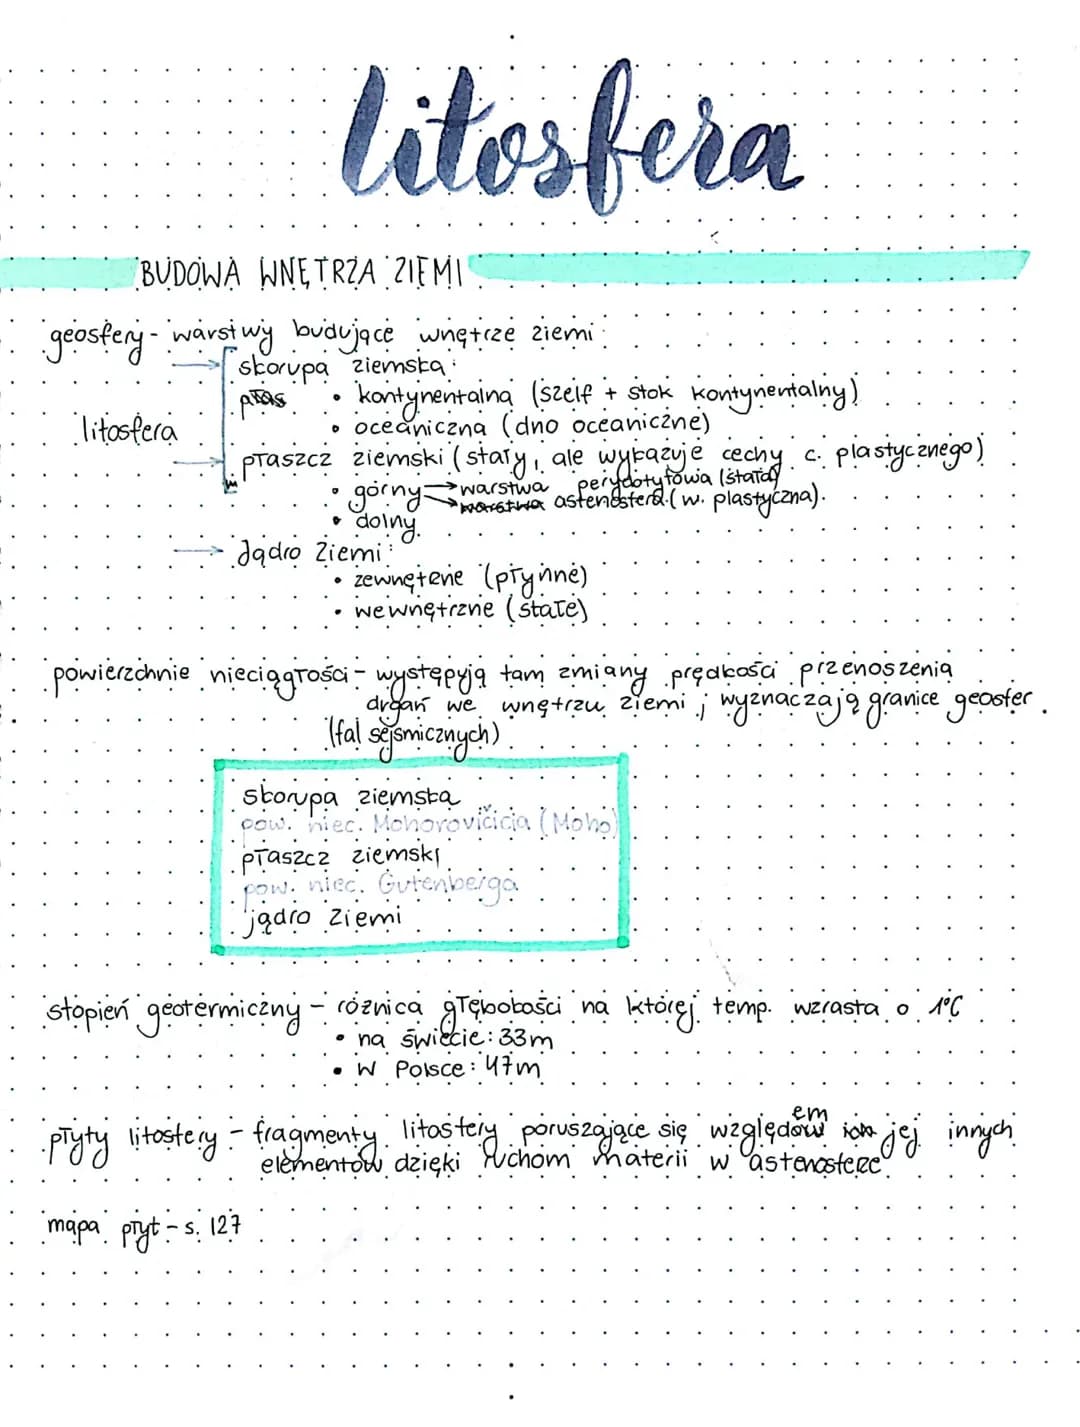 litosfera
BUDOWA WNĘTRZA ZIEMI
geosfery - warstwy budujące wnętrze ziemi:
→ skorupa ziemska:
płas • kontynentalna (szelf + stok kontynentalny)
litosfera
• oceaniczna (dno oceaniczne)
→ płaszcz ziemski (stały, ale wykazuje cechy c. plastycznego)
• górny → warstwa perydotytowa (stała)
→ warstwa astenosfera (w. plastyczna).
• dolny.
→ Jądro Ziemi:
• zewnętrzne (płynne)
• wewnętrzne (stałe)
powierzchnie nieciągłości - występują tam zmiany prędkości przenoszenia
drgań we wnętrzu ziemi; wyznaczają granice geosfer.
(fal sejsmicznych)
skorupa ziemska
pow. niec. Mohorovičicia (Moho)
płaszcz ziemski
pow. niec. Gutenberga
jądro Ziemi
stopień geotermiczny - różnica głębokości na której temp. wzrasta o 1°C
• na świecie: 33m
• w Polsce: 47m
em
płyty litosfery - fragmenty litosfery poruszające się względow ich jej innych
elementów dzięki ruchom materii w astenosferze
mapa płyt - s. 127